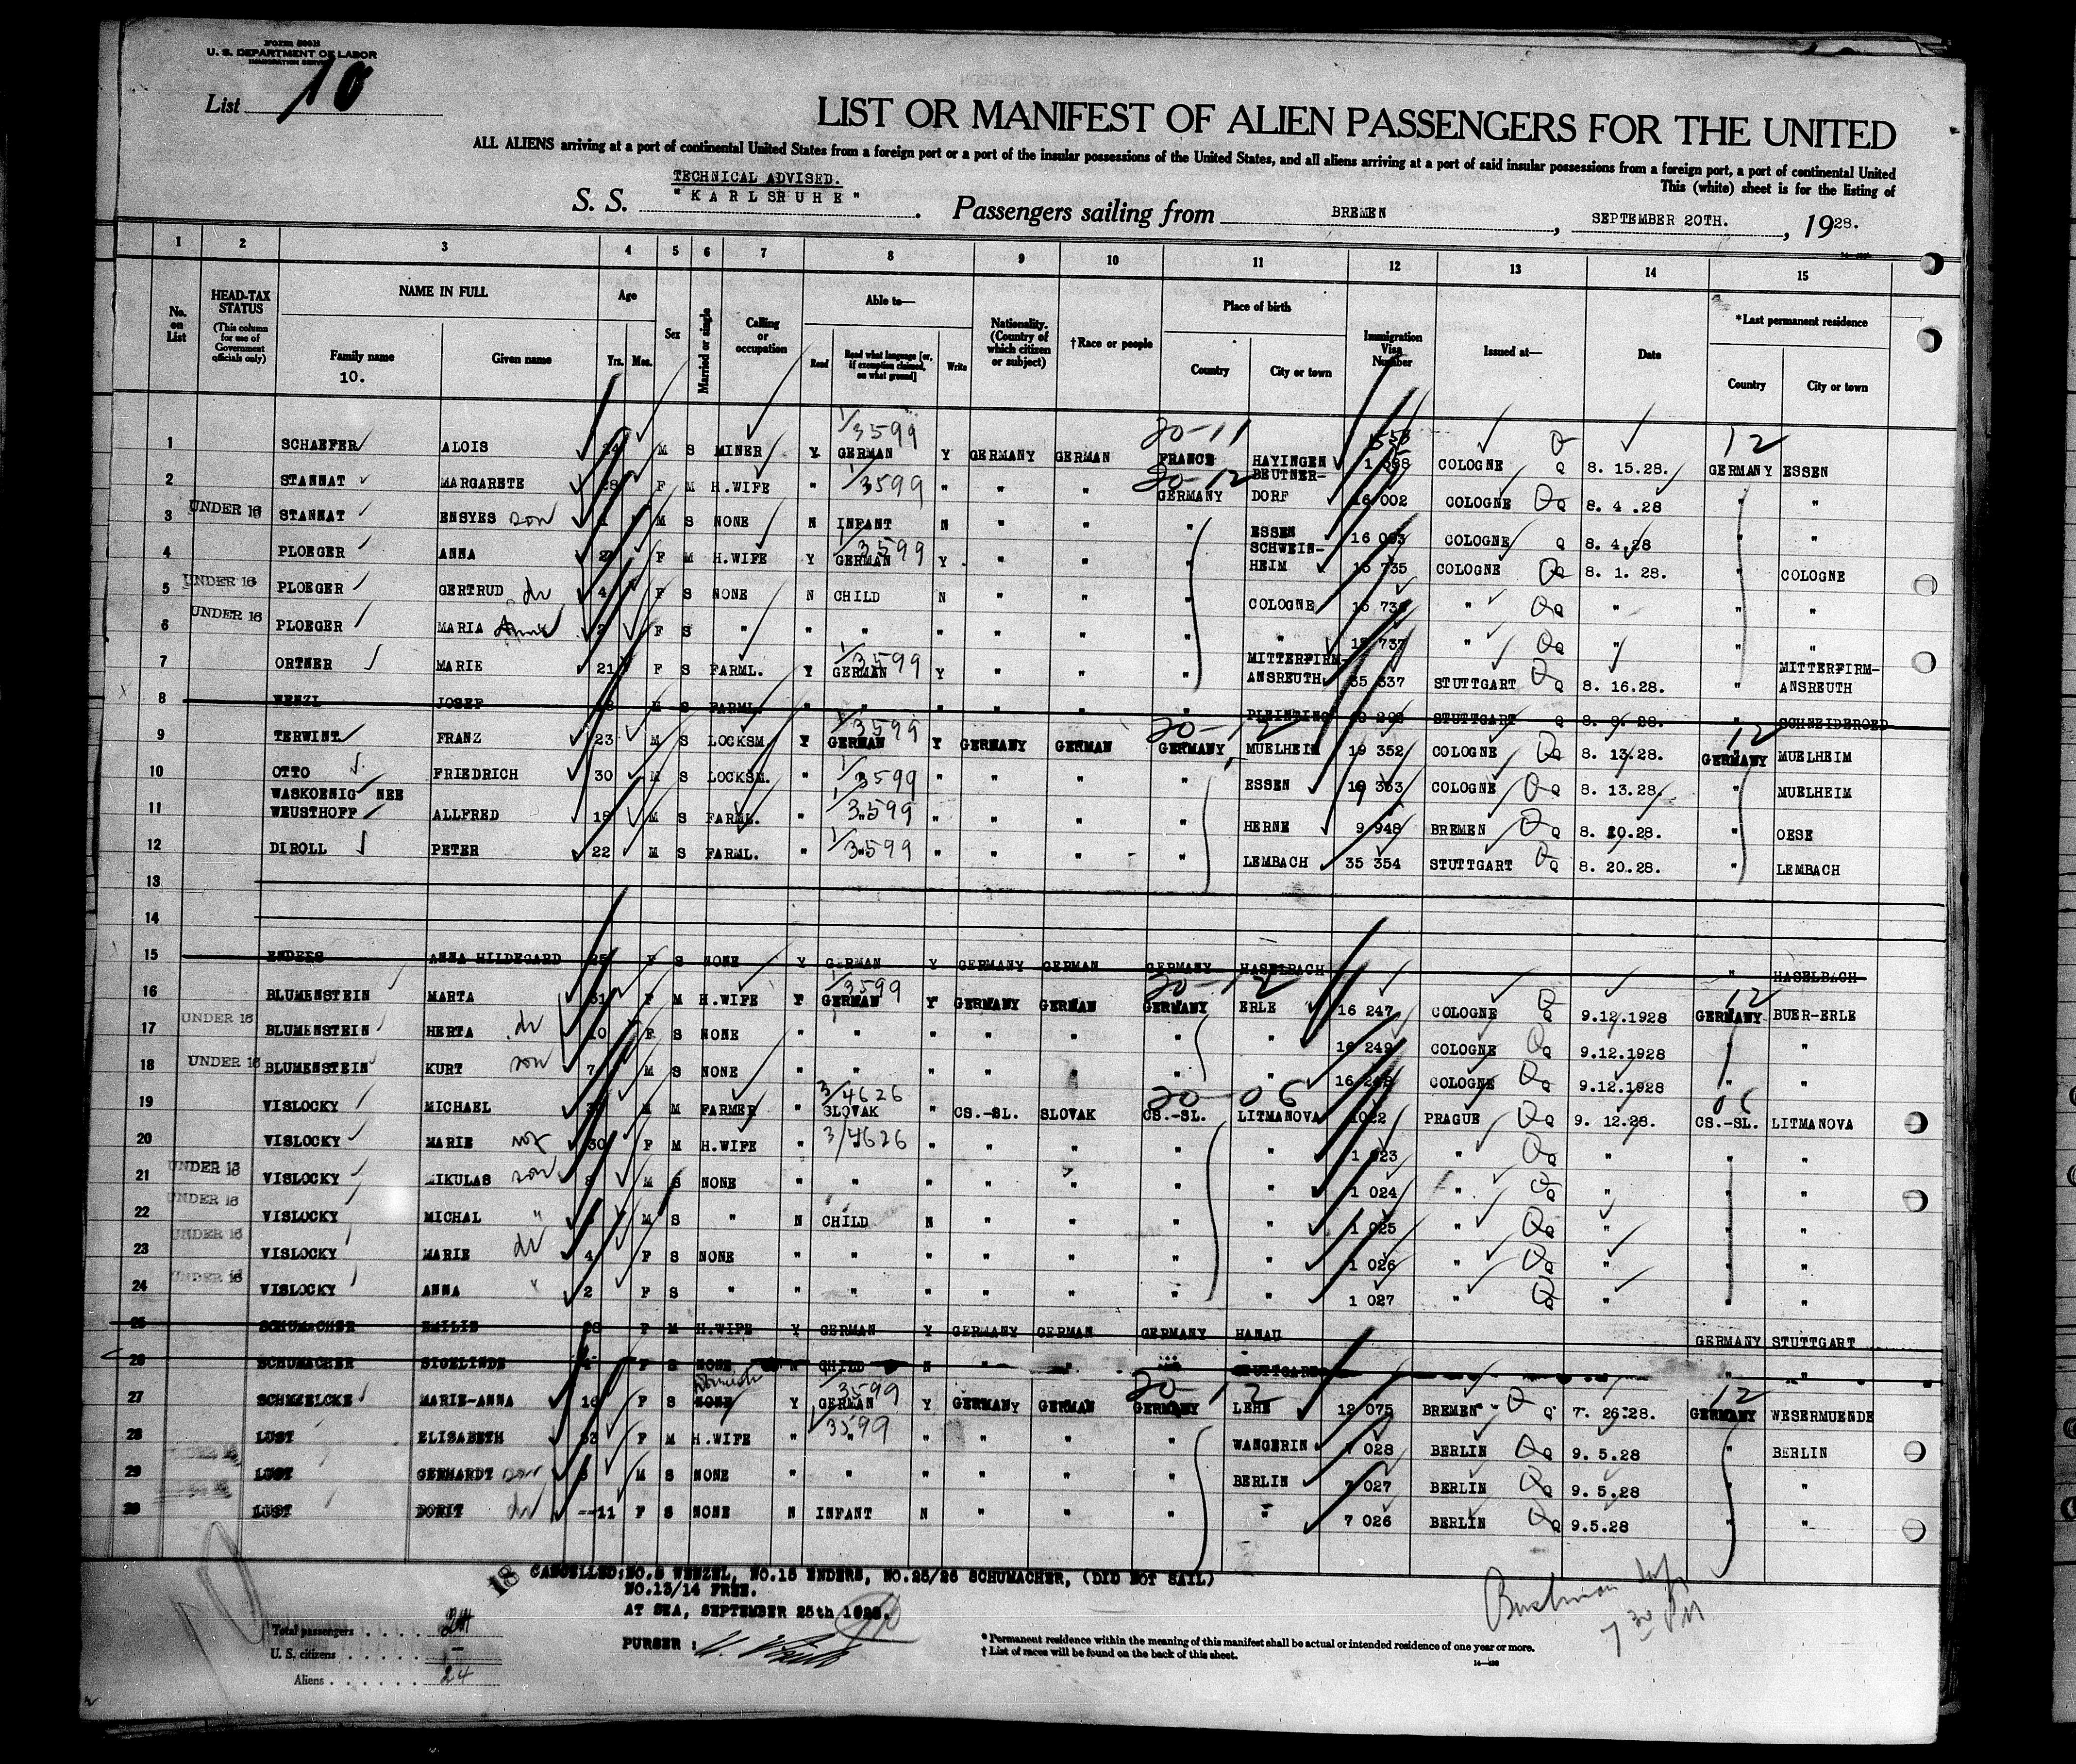 Form 500 B
U. S. DEPARTMENT OF LABOR
IMMIGRATION SERVICE
List 10
LIST OR MANIFEST OF ALIEN PASSENGERS FOR THE UNITED
ALL ALIENS arriving at a port of continental United States from a foreign port or a port of the insular possessions of the United States, and all aliens arriving at a port of said insular possessions from a foreign port, a port of continental United
This (white) sheet is for the listing of
TECHNICAL ADVISED.
S. S. "KARLSRUHE" . Passengers sailing from BREMEN , SEPTEMBER 20TH. , 1928.
1 2 3 4 5 6 7 8 9 10 11 12 13 14 15
No. on List
HEAD-TAX STATUS (This column for use of Government officials only)
NAME IN FULL
Family name
10.
Given name
Age
Yrs. Mos.
Sex
Married or single
Calling or occupation
Able to—
Read
Read what language [or, if exemption claimed, on what ground]
Write
Nationality. (Country of which citizen or subject)
†Race or people
Place of birth
Country
City or town
Immigration Visa Number
Issued at—
Date
*Last permanent residence
Country
City or town
1 SCHAEFER ALOIS 24 M S MINER Y 1/3599 GERMAN Y GERMANY GERMAN 20-11 FRANCE HAYINGEN COLOGNE Q 8. 15.28. 12 GERMANY ESSEN
2 STANNAT MARGARETE 28 F M H.WIFE " 1/3599 " " " 20-12 GERMANY BEUTNER-DORF 16 002 COLOGNE Q 8. 4 .28 " "
UNDER 16 3 STANNAT ENSYES son 1 M S NONE N INFANT N " " " ESSEN 16 003 COLOGNE Q 8. 4.28 " "
4 PLOEGER ANNA 27 F M H.WIFE Y 1/3599 GERMAN Y " " " SCHWEIN-HEIM 15 735 COLOGNE Q 8. 1. 28. COLOGNE
UNDER 16 5 PLOEGER GERTRUD 4 F S NONE N CHILD N " " " COLOGNE 15 736 " Q " " "
UNDER 16 6 PLOEGER MARIA 2 F S " " " " " " " " 15 737 " Q " "
7 ORTNER MARIE 21 F S FARML. Y 1/3599 GERMAN Y " " " MITTERFIRM-ANSREUTH 35 337 STUTTGART Q 8. 16.28. " MITTERFIRM-ANSREUTH
8 WENZL JOSEF M S FARML. " " " " " " PLEINTING STUTTGART Q 8. 9. 28. " SCHNEIDEROED
9 TERWINT FRANZ 23 M S LOCKSM. Y 1/3599 GERMAN Y GERMANY GERMAN 20-12 GERMANY MUELHEIM 19 352 COLOGNE Q 8. 13.28. 12 GERMANY MUELHEIM
10 OTTO FRIEDRICH 30 M S LOCKSM. " 1/3599 " " " " ESSEN 19 353 COLOGNE Q 8. 13.28. " MUELHEIM
WASKOENIG NEE
11 WEUSTHOFF ALLFRED 19 M S FARML. " 1/3599 " " " " HERNE 9 948 BREMEN Q 8. 20.28. " OESE
12 DIROLL PETER 22 M S FARML. " 1/3599 " " " " LEMBACH 35 354 STUTTGART Q 8. 20.28. " LEMBACH
13
14
15 ENDERS ANNA HILDEGARD 25 F S NONE Y GERMAN Y GERMANY GERMAN GERMANY HASELBACH " HASELBACH
16 BLUMENSTEIN MARTA 31 F M H.WIFE Y 1/3599 GERMAN Y GERMANY GERMAN 20-12 GERMANY ERLE 16 247 COLOGNE Q 9.12.1928 12 GERMANY BUER-ERLE
UNDER 16 17 BLUMENSTEIN HERTA 10 F S NONE " " " " " " " 16 249 COLOGNE Q 9.12.1928 " "
UNDER 16 18 BLUMENSTEIN KURT son 7 M S NONE " " " " " " " 16 248 COLOGNE Q 9.12.1928 " "
19 VISLOCKY MICHAEL M M FARMER " 3/4626 SLOVAK " CS.-SL. SLOVAK 20-06 CS.-SL. LITMANOVA 1022 PRAGUE Q 9. 12.28. 06 CS.-SL. LITMANOVA
20 VISLOCKY MARIE 30 F M H.WIFE " 3/4626 " " " " " 1 023 " Q " " "
UNDER 16 21 VISLOCKY MIKULAS son 8 M S NONE " " " " " " " 1 024 " Q " " "
UNDER 16 22 VISLOCKY MICHAL " M S " N CHILD N " " " " 1 025 " Q " " "
UNDER 16 23 VISLOCKY MARIE 4 F S NONE " " " " " " " 1 026 " Q " " "
UNDER 16 24 VISLOCKY ANNA " 2 F S " " " " " " " " 1 027 " Q " " "
25 SCHUMACHER EMILIE 28 F M H.WIFE Y GERMAN Y GERMANY GERMAN GERMANY HANAU GERMANY STUTTGART
26 SCHUMACHER SIGELINDE F S NONE N CHILD N " " " STUTTGART " "
27 SCHMAELCKE MARIE-ANNA 16 F S NONE Y 1/3599 GERMAN Y GERMANY GERMAN 20-12 GERMANY LEHE 12 075 BREMEN Q 7. 26.28. 12 GERMANY WESERMUENDE
28 LUST ELISABETH 32 F M H.WIFE " 1/3599 " " " " WANGERIN 7 028 BERLIN Q 9. 5.28 " BERLIN
29 LUST GERHARDT son M S NONE " " " " " " BERLIN 7 027 BERLIN Q 9. 5.28 " "
30 LUST DORIT --11 F S NONE N INFANT N " " " " 7 026 BERLIN Q 9.5.28 " "
18 CANCELLED:NO.8 WENZEL, NO.15 ENDERS, NO.25/26 SCHUMACHER, (DID NOT SAIL)
NO.13/14 FREE.
AT SEA, SEPTEMBER 25th 1928.
PURSER :
Total passengers . . . . 24
U. S. citizens . . . . . -
Aliens . . . . . . 24
* Permanent residence within the meaning of this manifest shall be actual or intended residence of one year or more.
† List of races will be found on the back of this sheet.
7 30 PM